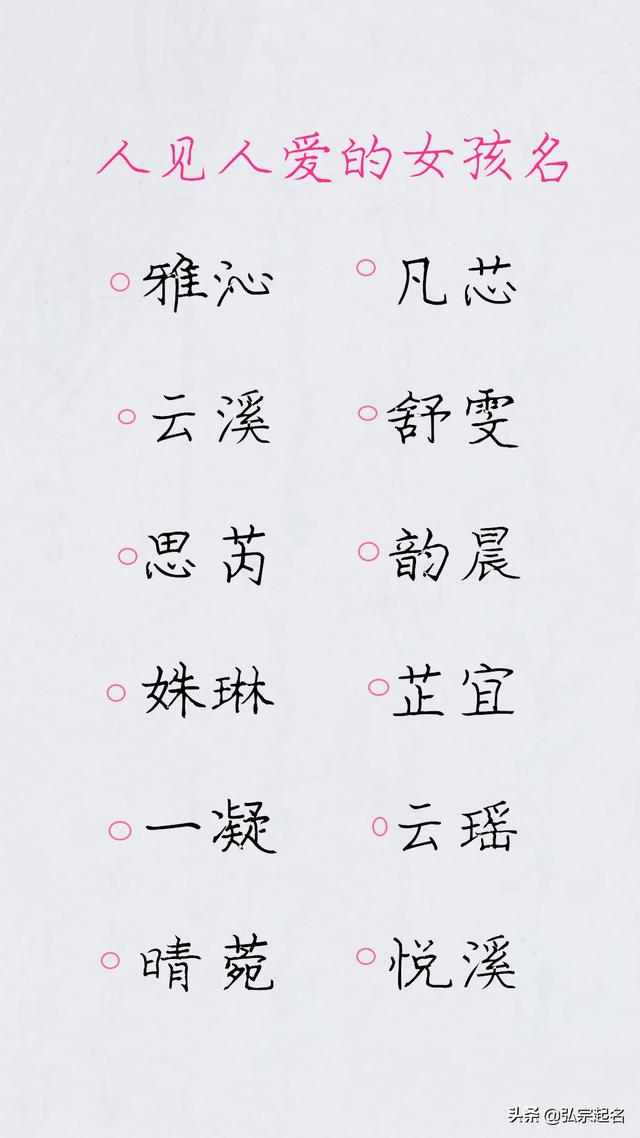 人见人爱的女孩名
雅沁 凡芯
云溪 舒雯
思芮 韵晨
姝琳 芷宜
一凝 云瑶
晴菀 悦溪
头条 @弘宗起名